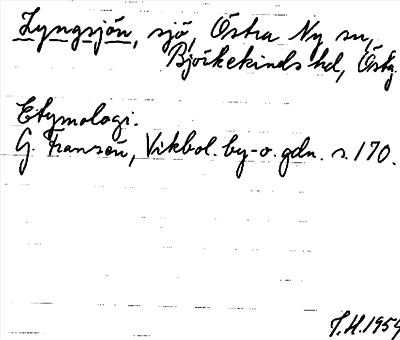 Lyngsjön, sjö, Östra Ny sn,
Björkekinds hd, Östg.
Etymologi.
G. Franzén, Vikbol. by-o. gdn. s. 170.
J.H. 1954